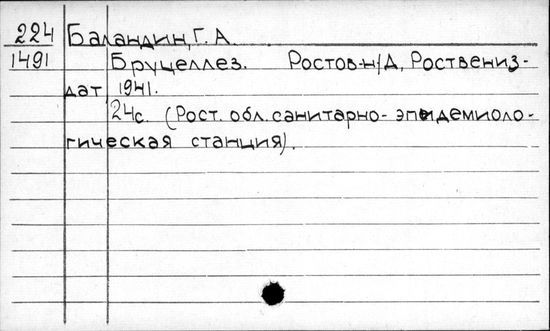 224
1491
Баландин, Г. А.
Бруцеллез. Ростов-н/Д, Роствениз-
дат 1941.
24с. (Рост. обл. санитарно-эпидемиоло-
гическая станция).